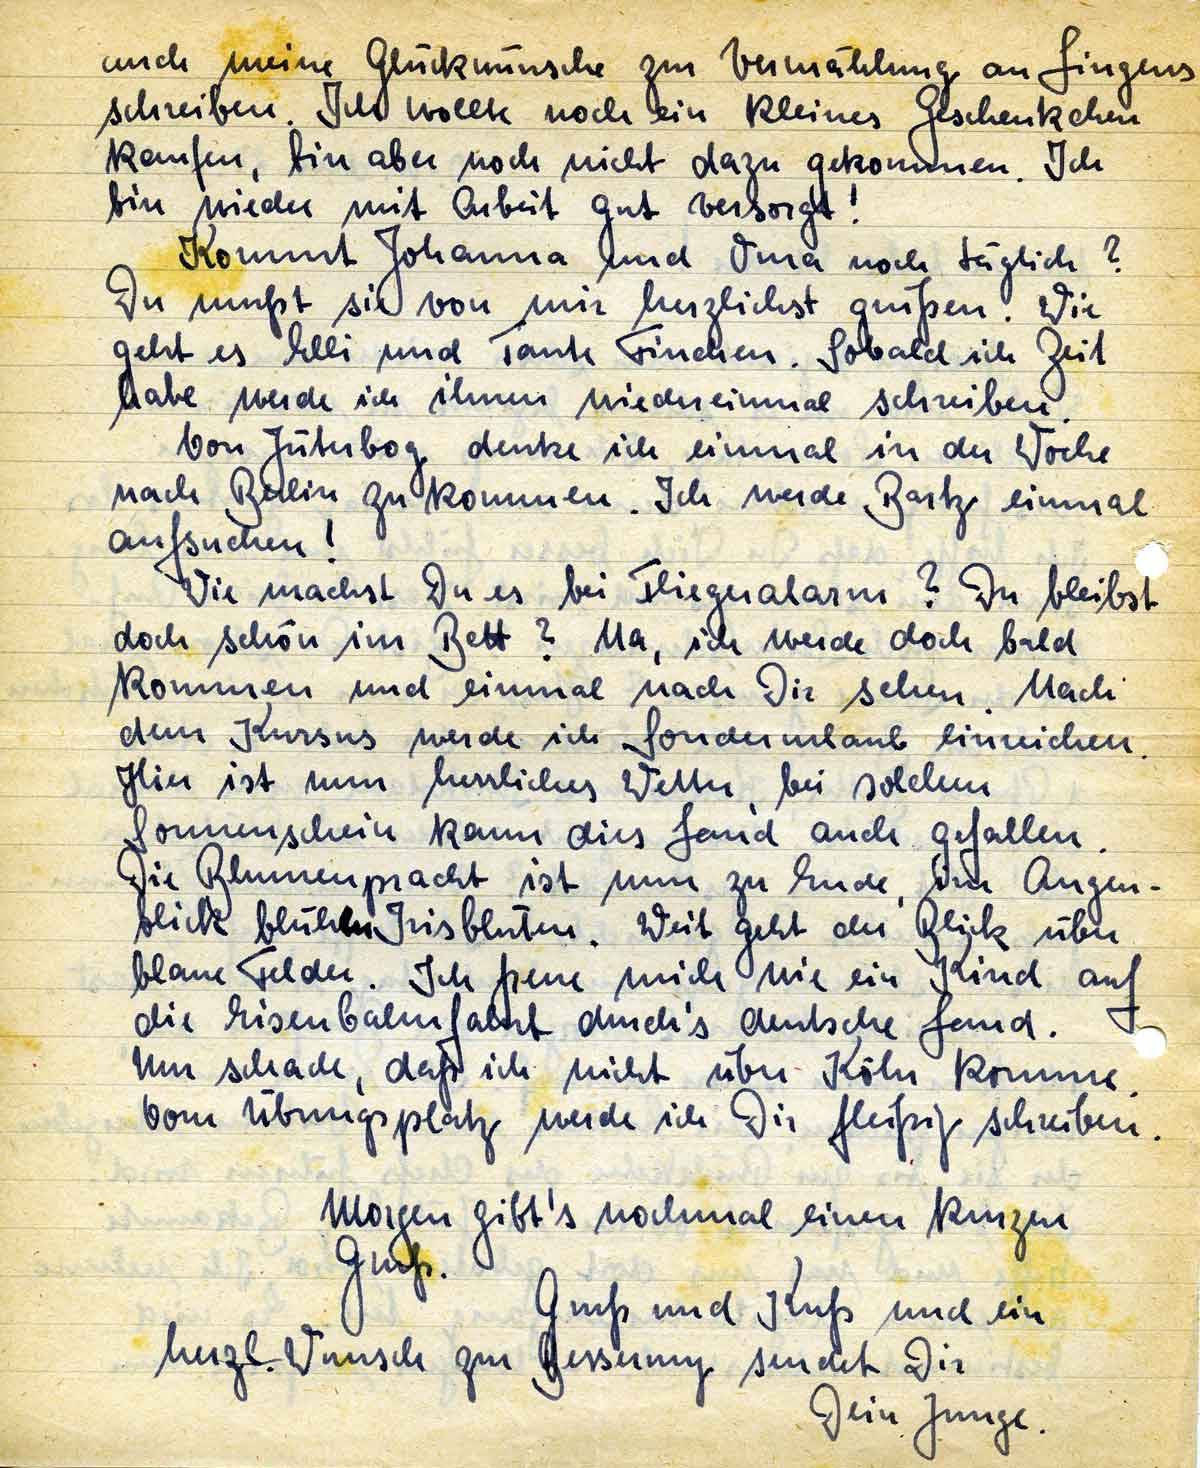 auch meine Glückwünsche zur Vermählung an Lingens
schreiben. Ich wollte noch ein kleines Geschenkchen
kaufen, bin aber noch nicht dazu gekommen. Ich
bin wieder mit Arbeit gut versorgt!
Kommt Johanna und Oma noch täglich?
Du mußt sie von mir herzlichst grüßen. Wie
geht es Elli und Tante Finchen. Sobald ich Zeit
habe werde ich ihnen wiedereinmal schreiben.
Von Jüterbog denke ich einmal in der Woche
nach Berlin zu kommen. Ich werde Bartz einmal
aufsuchen!
Wie machst Du es bei Fliegeralarm? Du bleibst
doch schön im Bett? Na, ich werde doch bald
kommen und einmal nach Dir sehen. Nach
dem Kursus werde ich Sonderurlaub einreichen.
Hier ist nun herrliches Wetter, bei solchem
Sonnenschein kann dies Land auch gefallen.
Die Blumenpracht ist nun zu Ende, im Augen-
blick blühen Irisblüten. Weit geht der Blick über
blaue Felder. Ich freue mich wie ein Kind auf
die Eisenbahnfahrt durch's deutsche Land.
Nur schade, daß ich nicht über Köln komme.
Vom Übungsplatz werde ich Dir fleißig schreiben.
Morgen gibt's nochmal einen kurzen
Gruß.
Gruß und Kuß und ein
herzl. Wunsch zur Besserung sendet Dir
Dein Junge.